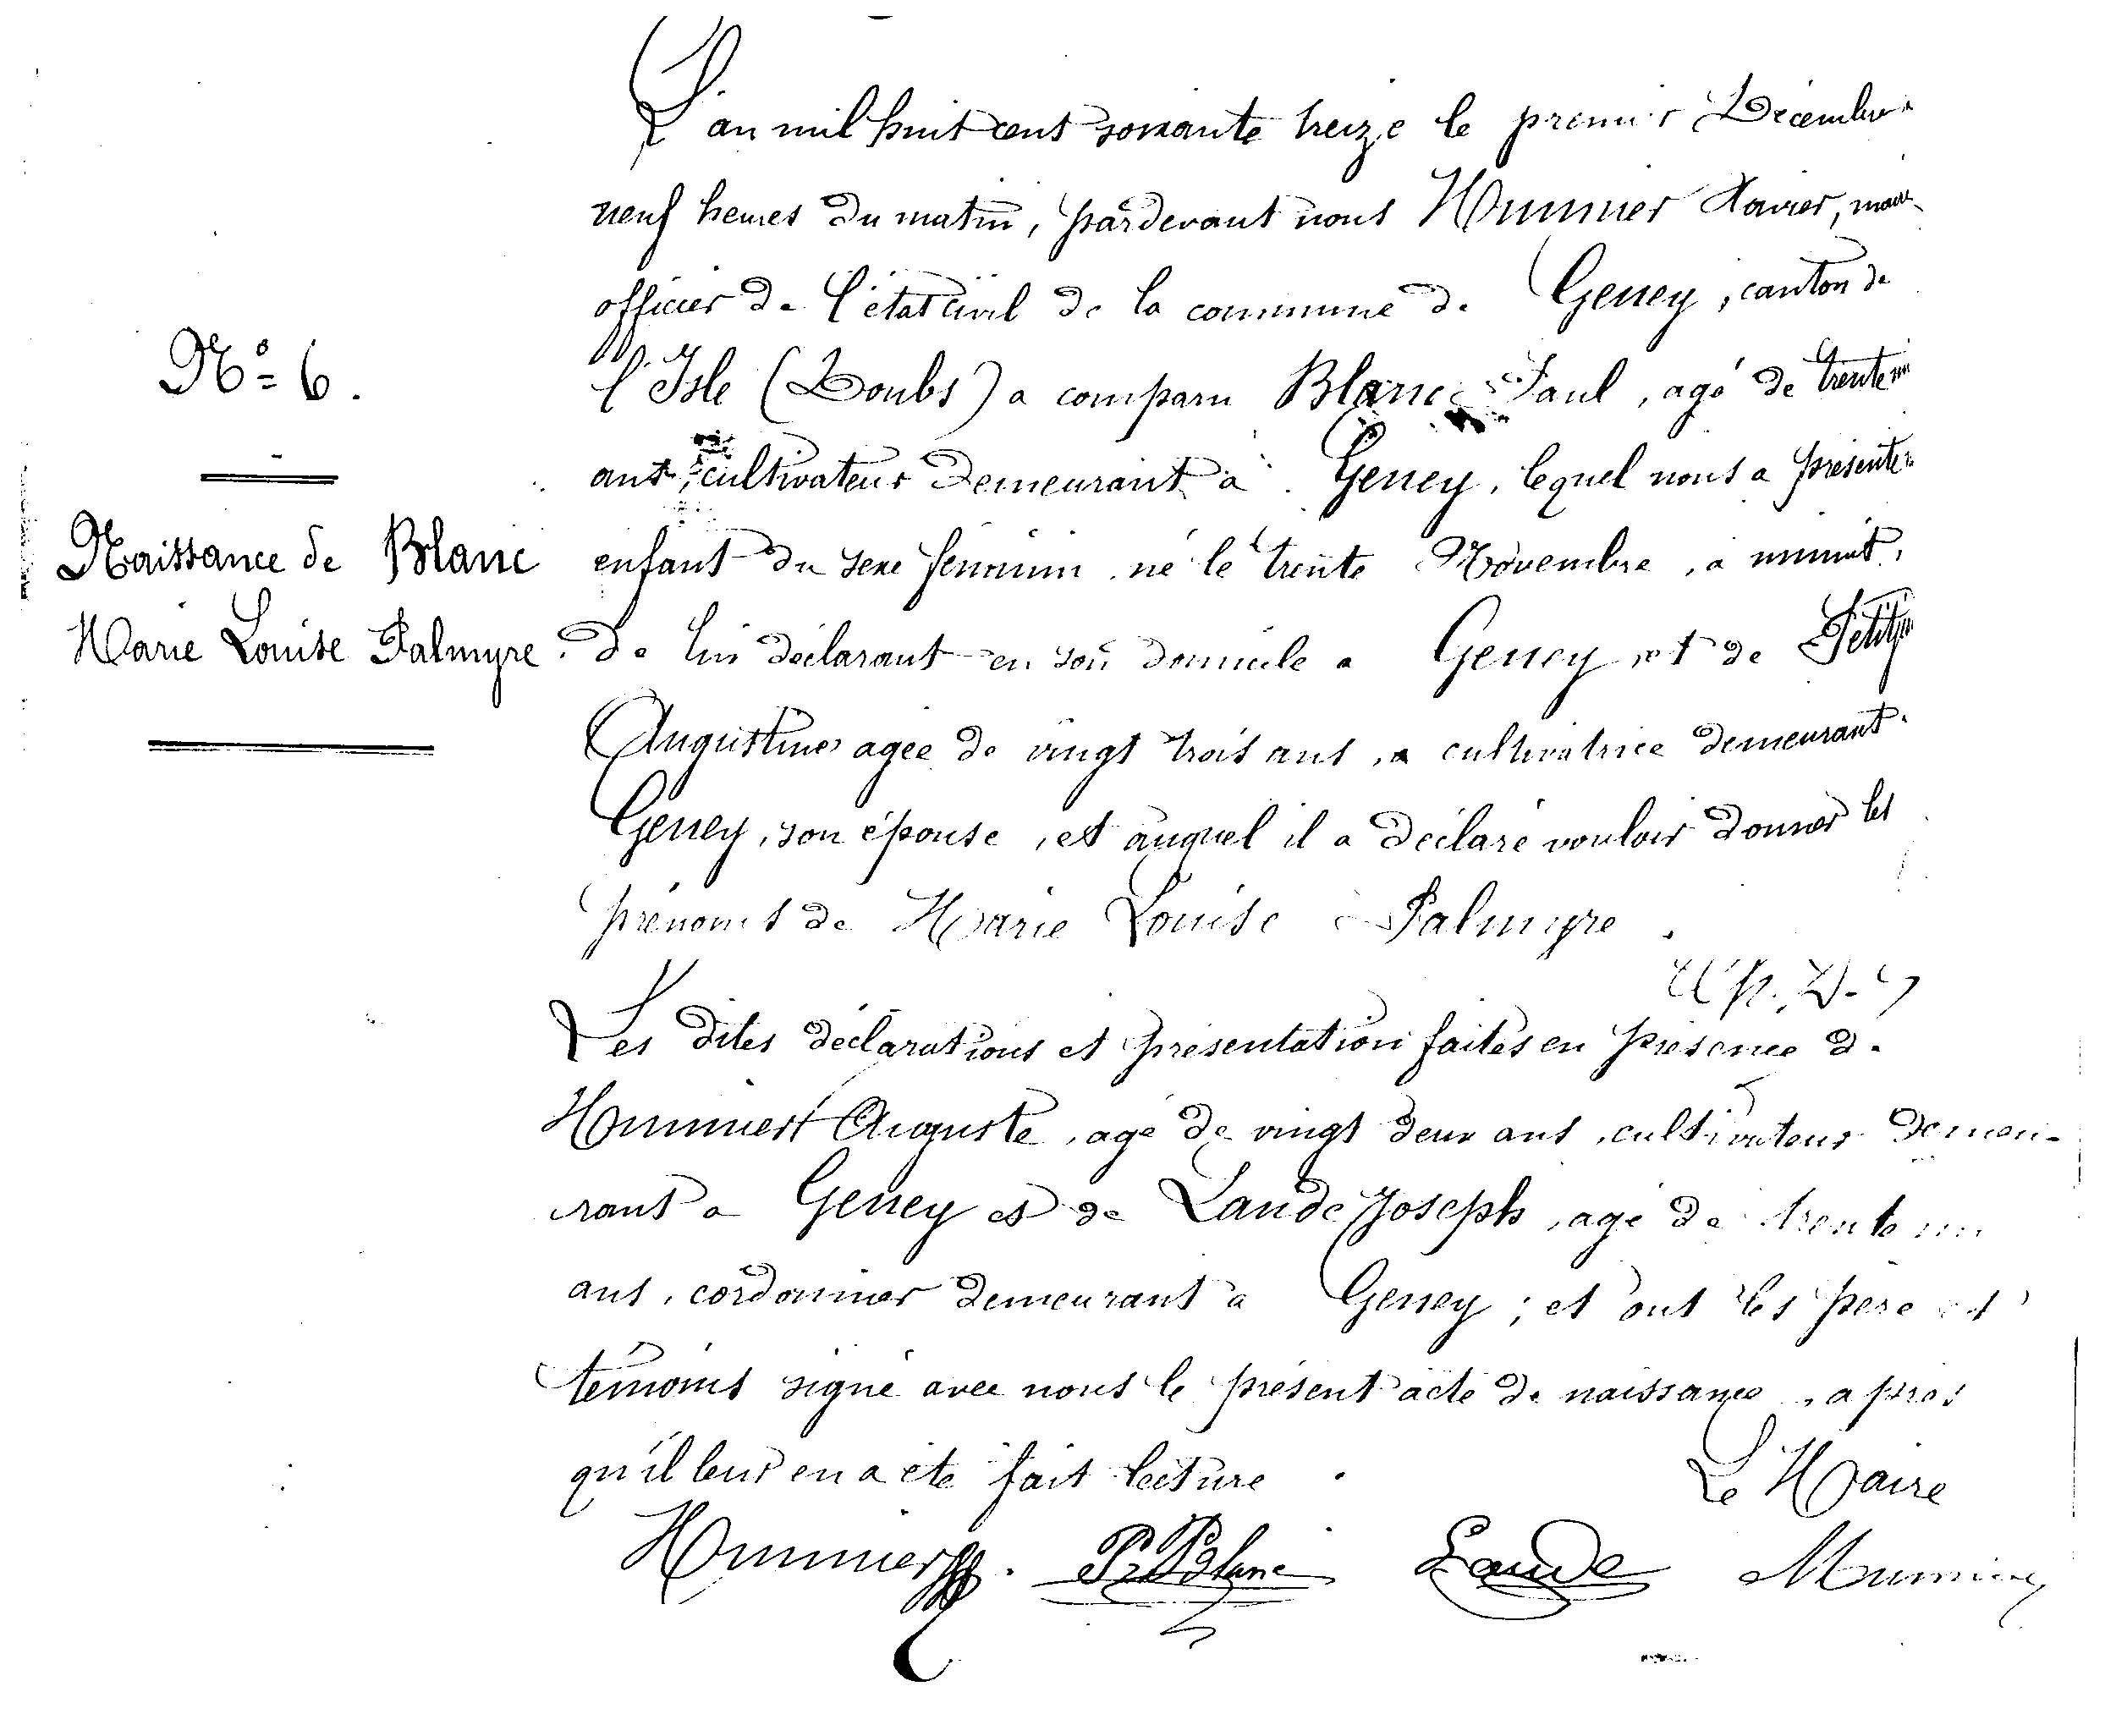 L'an mil huit cent soixante treize le premier Décembre
neuf heures du matin, pardevant nous Mumnier Xavier, maire
officier de l'état civil de la commune de Geney, canton de
l'Isle (Doubs) a comparu Blanc Paul, agé de trente
ans, cultivateur demeurant à Geney, lequel nous a présenté
enfant du sexe féminin né le trente Novembre, à minuit,
de lui déclarant en son domicile a Geney et de
Augustine agée de vingt trois ans, cultivatrice demeurant
Geney, son épouse, et auquel il a déclaré vouloir donner les
prénoms de Marie Louise Palmyre.
Les dites déclarations et présentation faites en présence de
Auguste, agé de vingt deux ans, cultivateur demeu-
rant a Geney et de Lande Joseph, agé de trente
ans, cordonnier demeurant a Geney ; et ont les père et
témoins signé avec nous le présent acte de naissance, après
qu'il leur en a été fait lecture.
Le Maire
P. Blanc Lande
N° 6.
Naissance de Blanc
Marie Louise Palmyre.